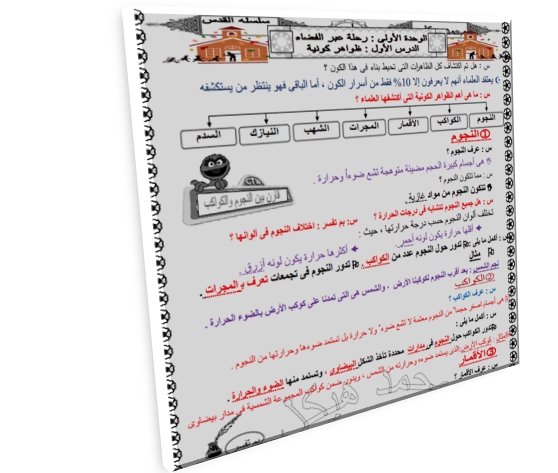 سلسلة القدس
الوحدة الأولى : رحلة عبر الفضاء
الدرس الأول : ظواهر كونية
س : هل تم اكتشاف كل الظاهرات التى تحيط بناء فى هذا الكون ؟
يعتقد العلماء أنهم لا يعرفون إلا 10% فقط من أسرار الكون ، أما الباقى فهو ينتظر من يستكشفه
س : ما هى أهم الظواهر الكونية التى أكتشفها العلماء ؟
النجوم الكواكب الأقمار المجرات الشهب النيازك السدم
① النجوم
س : عرف النجوم ؟
هى أجسام كبيرة الحجم مضيئة متوهجة تشع ضوءاً وحرارة .
س : مما تتكون النجوم ؟
تتكون النجوم من مواد غازية .
قارن بين النجوم والكواكب
س : هل جميع النجوم تتشابه فى درجات الحرارة ؟
س: بم تفسر : اختلاف النجوم فى ألوانها ؟
تختلف ألوان النجوم حسب درجة حرارتها ، حيث :
أقلها حرارة يكون لونه أحمر.
أكثرها حرارة يكون لونه أزرق .
س : أكمل ما يلى :
تدور حول النجوم عدد من الكواكب .
تدور النجوم فى تجمعات تعرف بـ المجرات .
مثال
نجم الشمس : يعد أقرب النجوم لكوكبنا الأرض ، والشمس هى التى تمدنا على كوكب الأرض بالضوء الحرارة .
② الكواكب
س : عرف الكواكب ؟
هى أجسام أصغر حجماً من النجوم معلمة لا تشع ضوء ولا حرارة بل تستمد ضوءها وحرارتها من النجوم .
س : أكمل ما يلى :
تدور الكواكب حول النجوم فى مدارات محددة تأخذ الشكل البيضاوى ، وتستمد منها الضوء والحرارة .
مثال : كوكب الأرض الذى يستمد ضوءه وحرارته من الشمس ، ويدور ضمن كواكب المجموعة الشمسية فى مدار بيضاوى
③ الأقمار
س : عرف الأقمار ؟